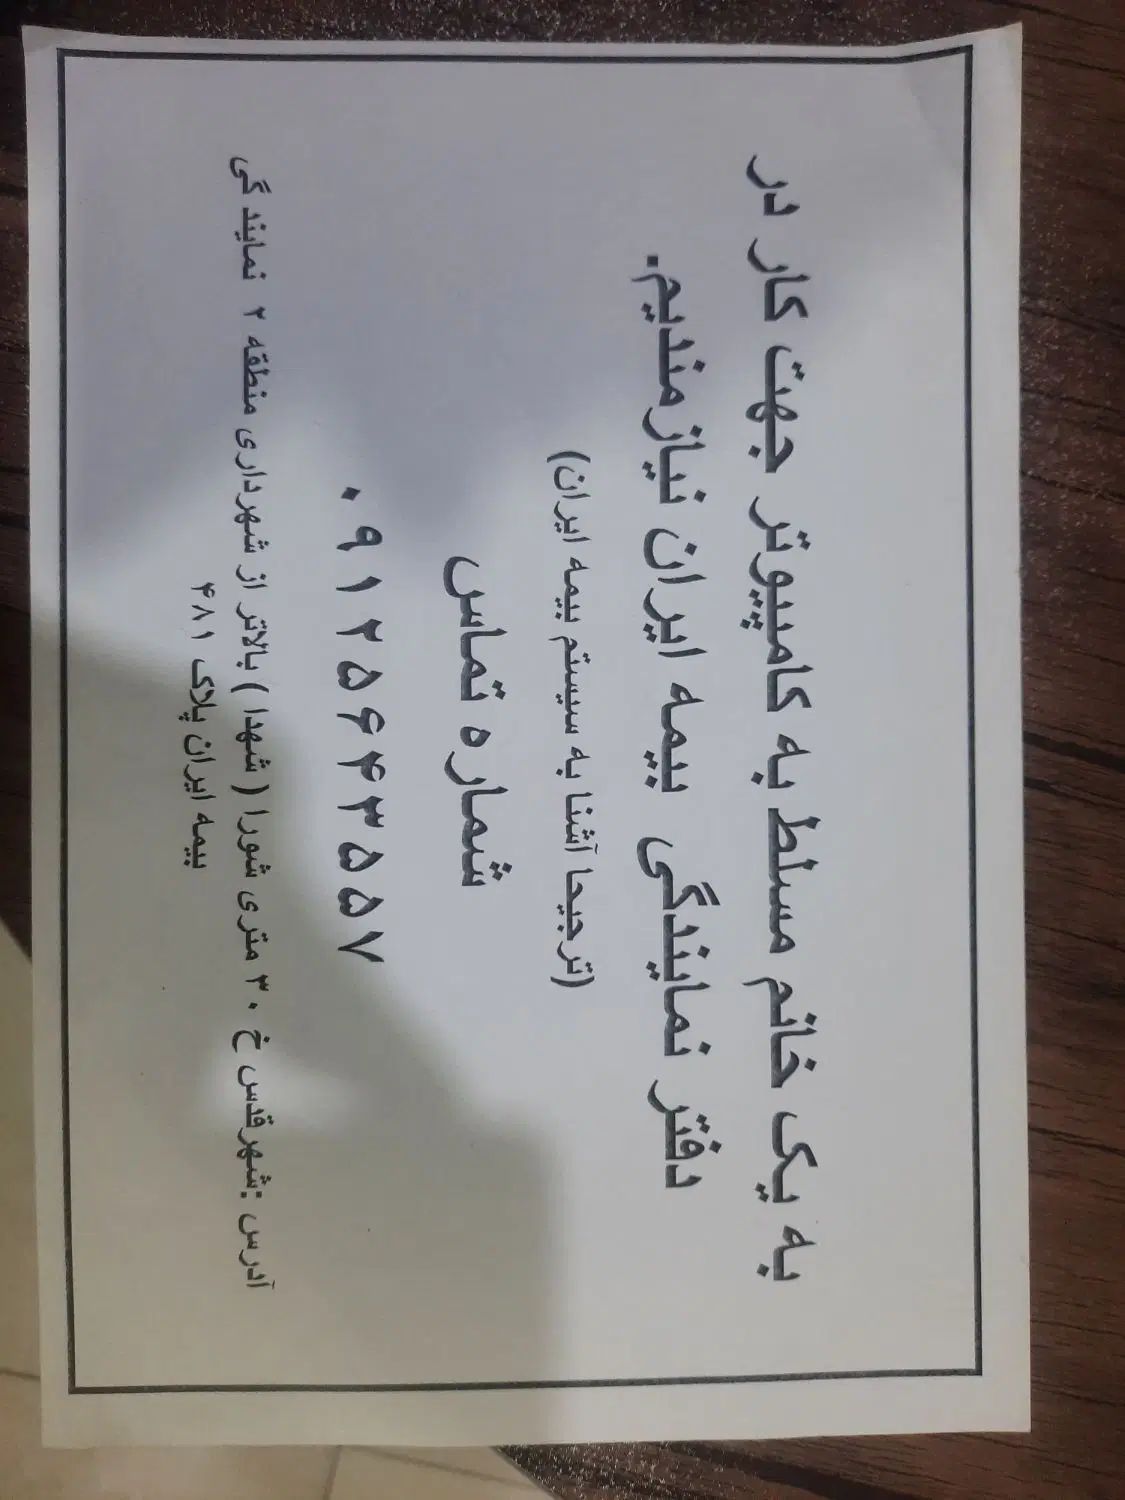 به یک خانم مسلط به کامپیوتر جهت کار در
دفتر نمایندگی بیمه ایران نیازمندیم.
(ترجیحا آشنا به سیستم بیمه ایران)
شماره تماس
۰۹۱۲۵۶۴۳۵۵۷
آدرس :شهرقدس خ ۳۰ متری شورا ( شهدا ) بالاتر از شهرداری منطقه ۲ نمایندگی
بیمه ایران پلاک ۴۸۱